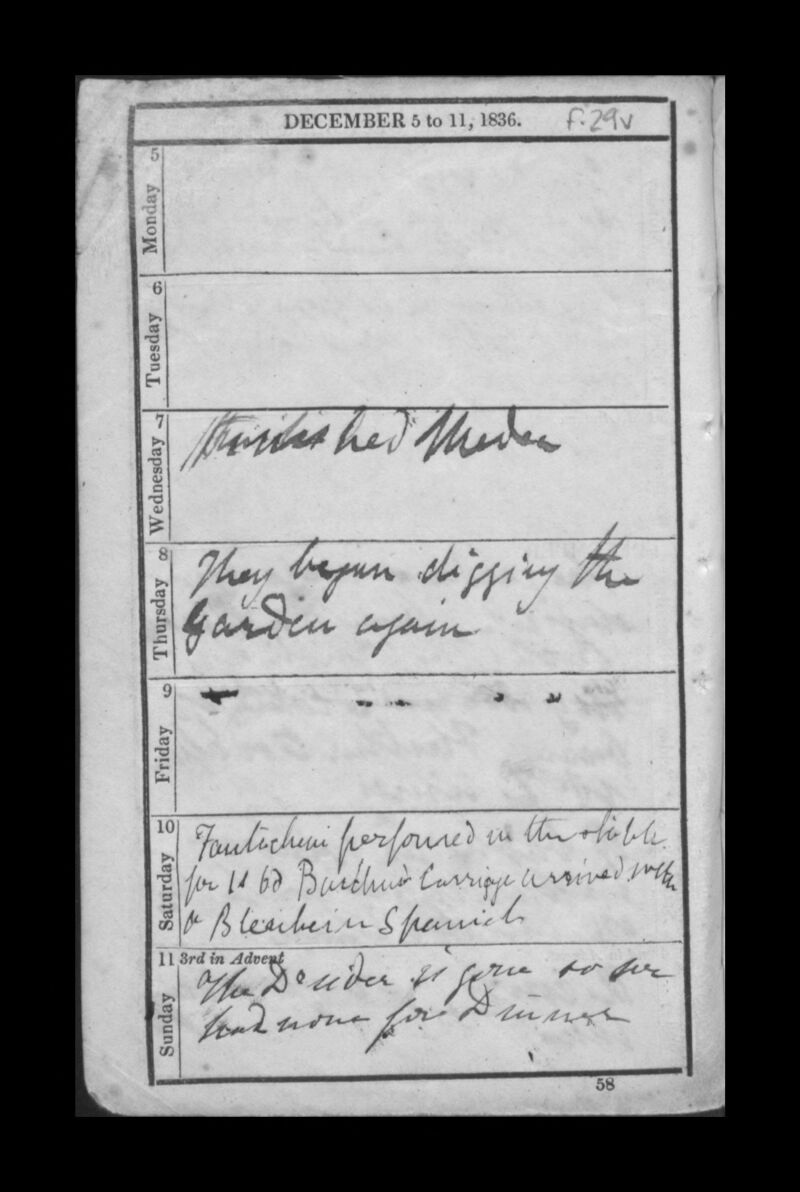 DECEMBER 5 to 11, 1836. f.29v
Monday 5
Tuesday 6
Wednesday 7
finished Medea
Thursday 8
They begun digging the
garden again
Friday 9
Saturday 10
Fantochini perfoured in the stable
for 1s 6d Carriage arrived with
a Blenheim Spaniel
11 3rd in Advent
Sunday
The is gone so we
had none for Dinner
58